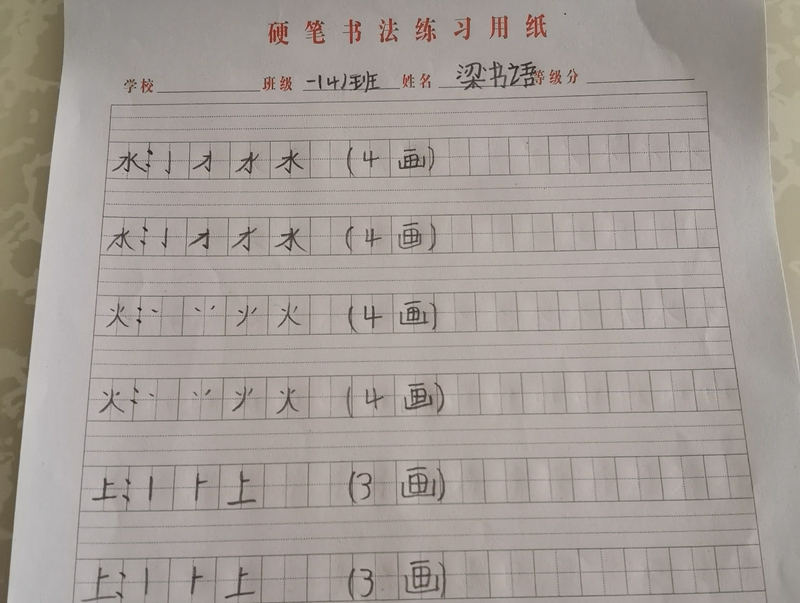 硬笔书法练习用纸
学校 班级 一(4)班 姓名 梁书语 等级分
水：亅 才 水 水 (4 画)
水：亅 才 水 水 (4 画)
火：丶 丷 火 (4 画)
火：丶 丷 火 (4 画)
上：丨 卜 上 (3 画)
上：丨 卜 上 (3 画)